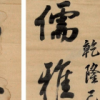 儒雅
乾隆